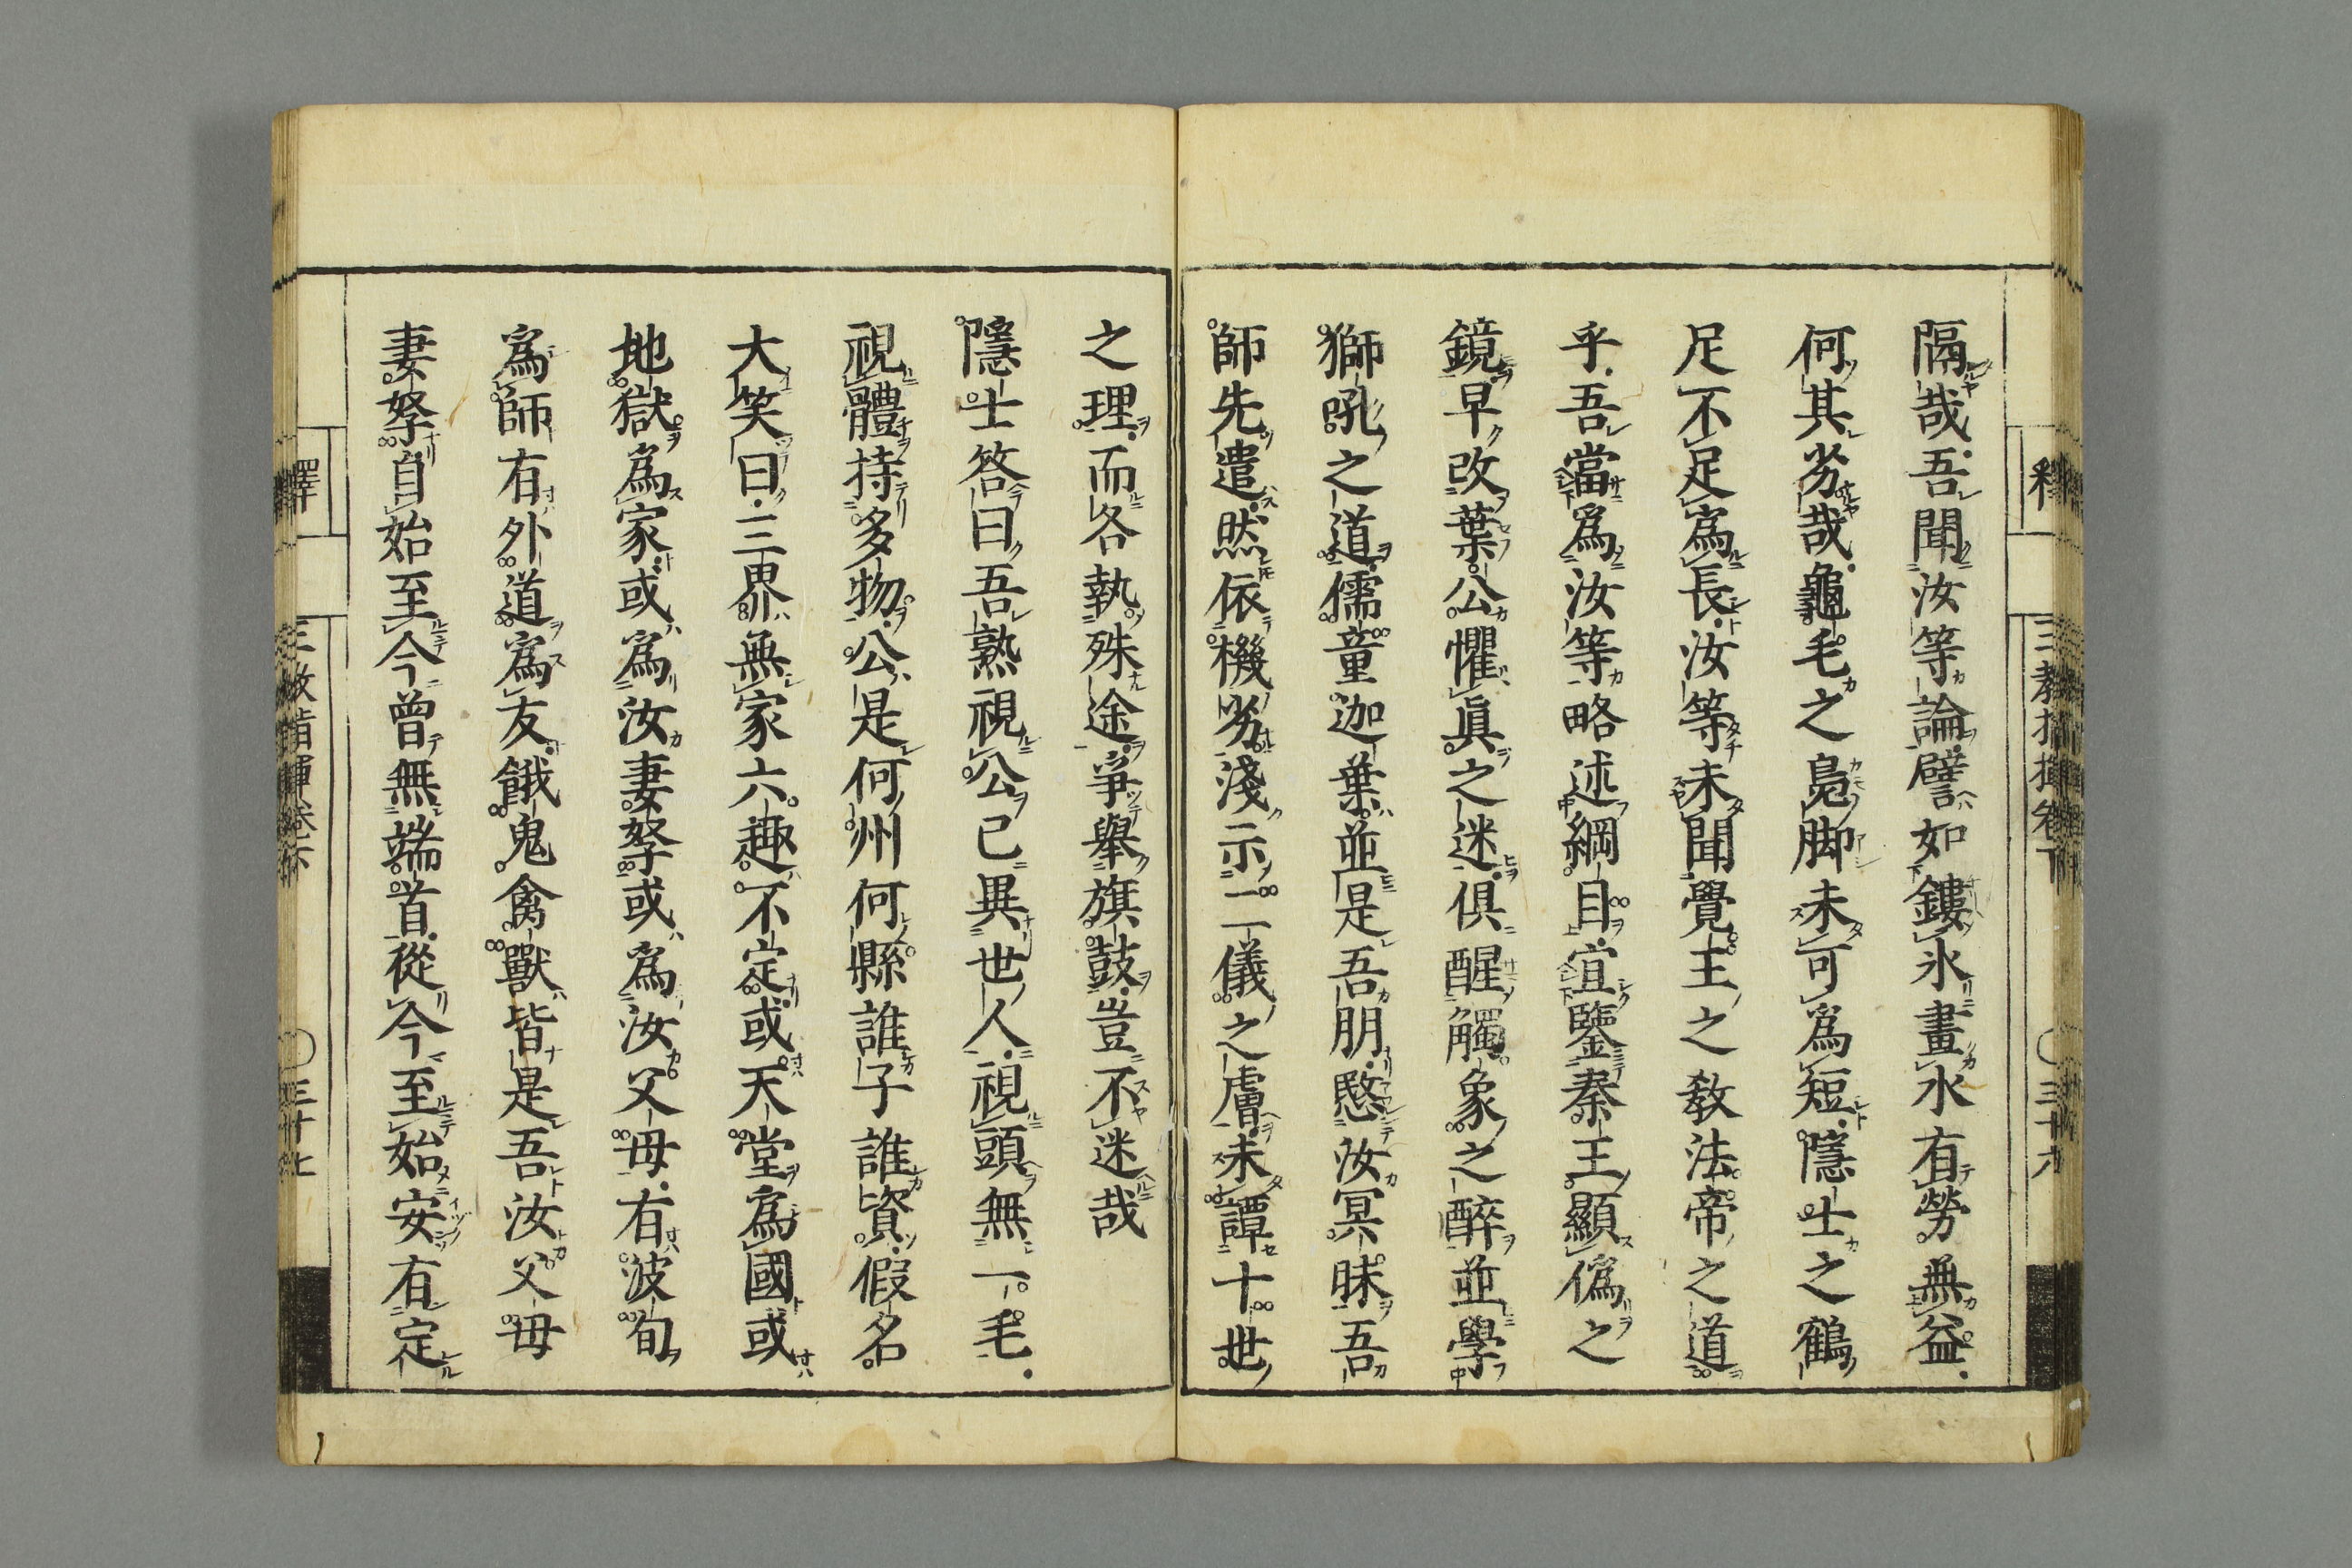 隔哉吾聞汝等論譬如鏤氷畫水有勞無益
何其劣哉龜毛之鳧脚未可爲短隱士之鶴
足不足爲長汝等未聞覺王之教法帝之道
乎吾當爲汝等略述綱目宜鑒秦王顯僞之
鏡早改葉公懼眞之迷俱醒觸象之醉並學
獅吼之道儒童迦葉並是吾朋愍汝冥昧吾
師先遣然依機劣淺示二儀之膚未譚十世
之理而各執殊途爭擧旗鼓豈不迷哉
隱士答曰吾熟視公已異世人視頭無一毛
視體持多物公是何州何縣誰子誰資假名
大笑曰三界無家六趣不定或天堂爲國或
地獄爲家或爲汝妻孥或爲汝父母有波旬
爲師有外道爲友餓鬼禽獸皆是吾汝父母
妻孥自始至今曾無端首從今至始安有定